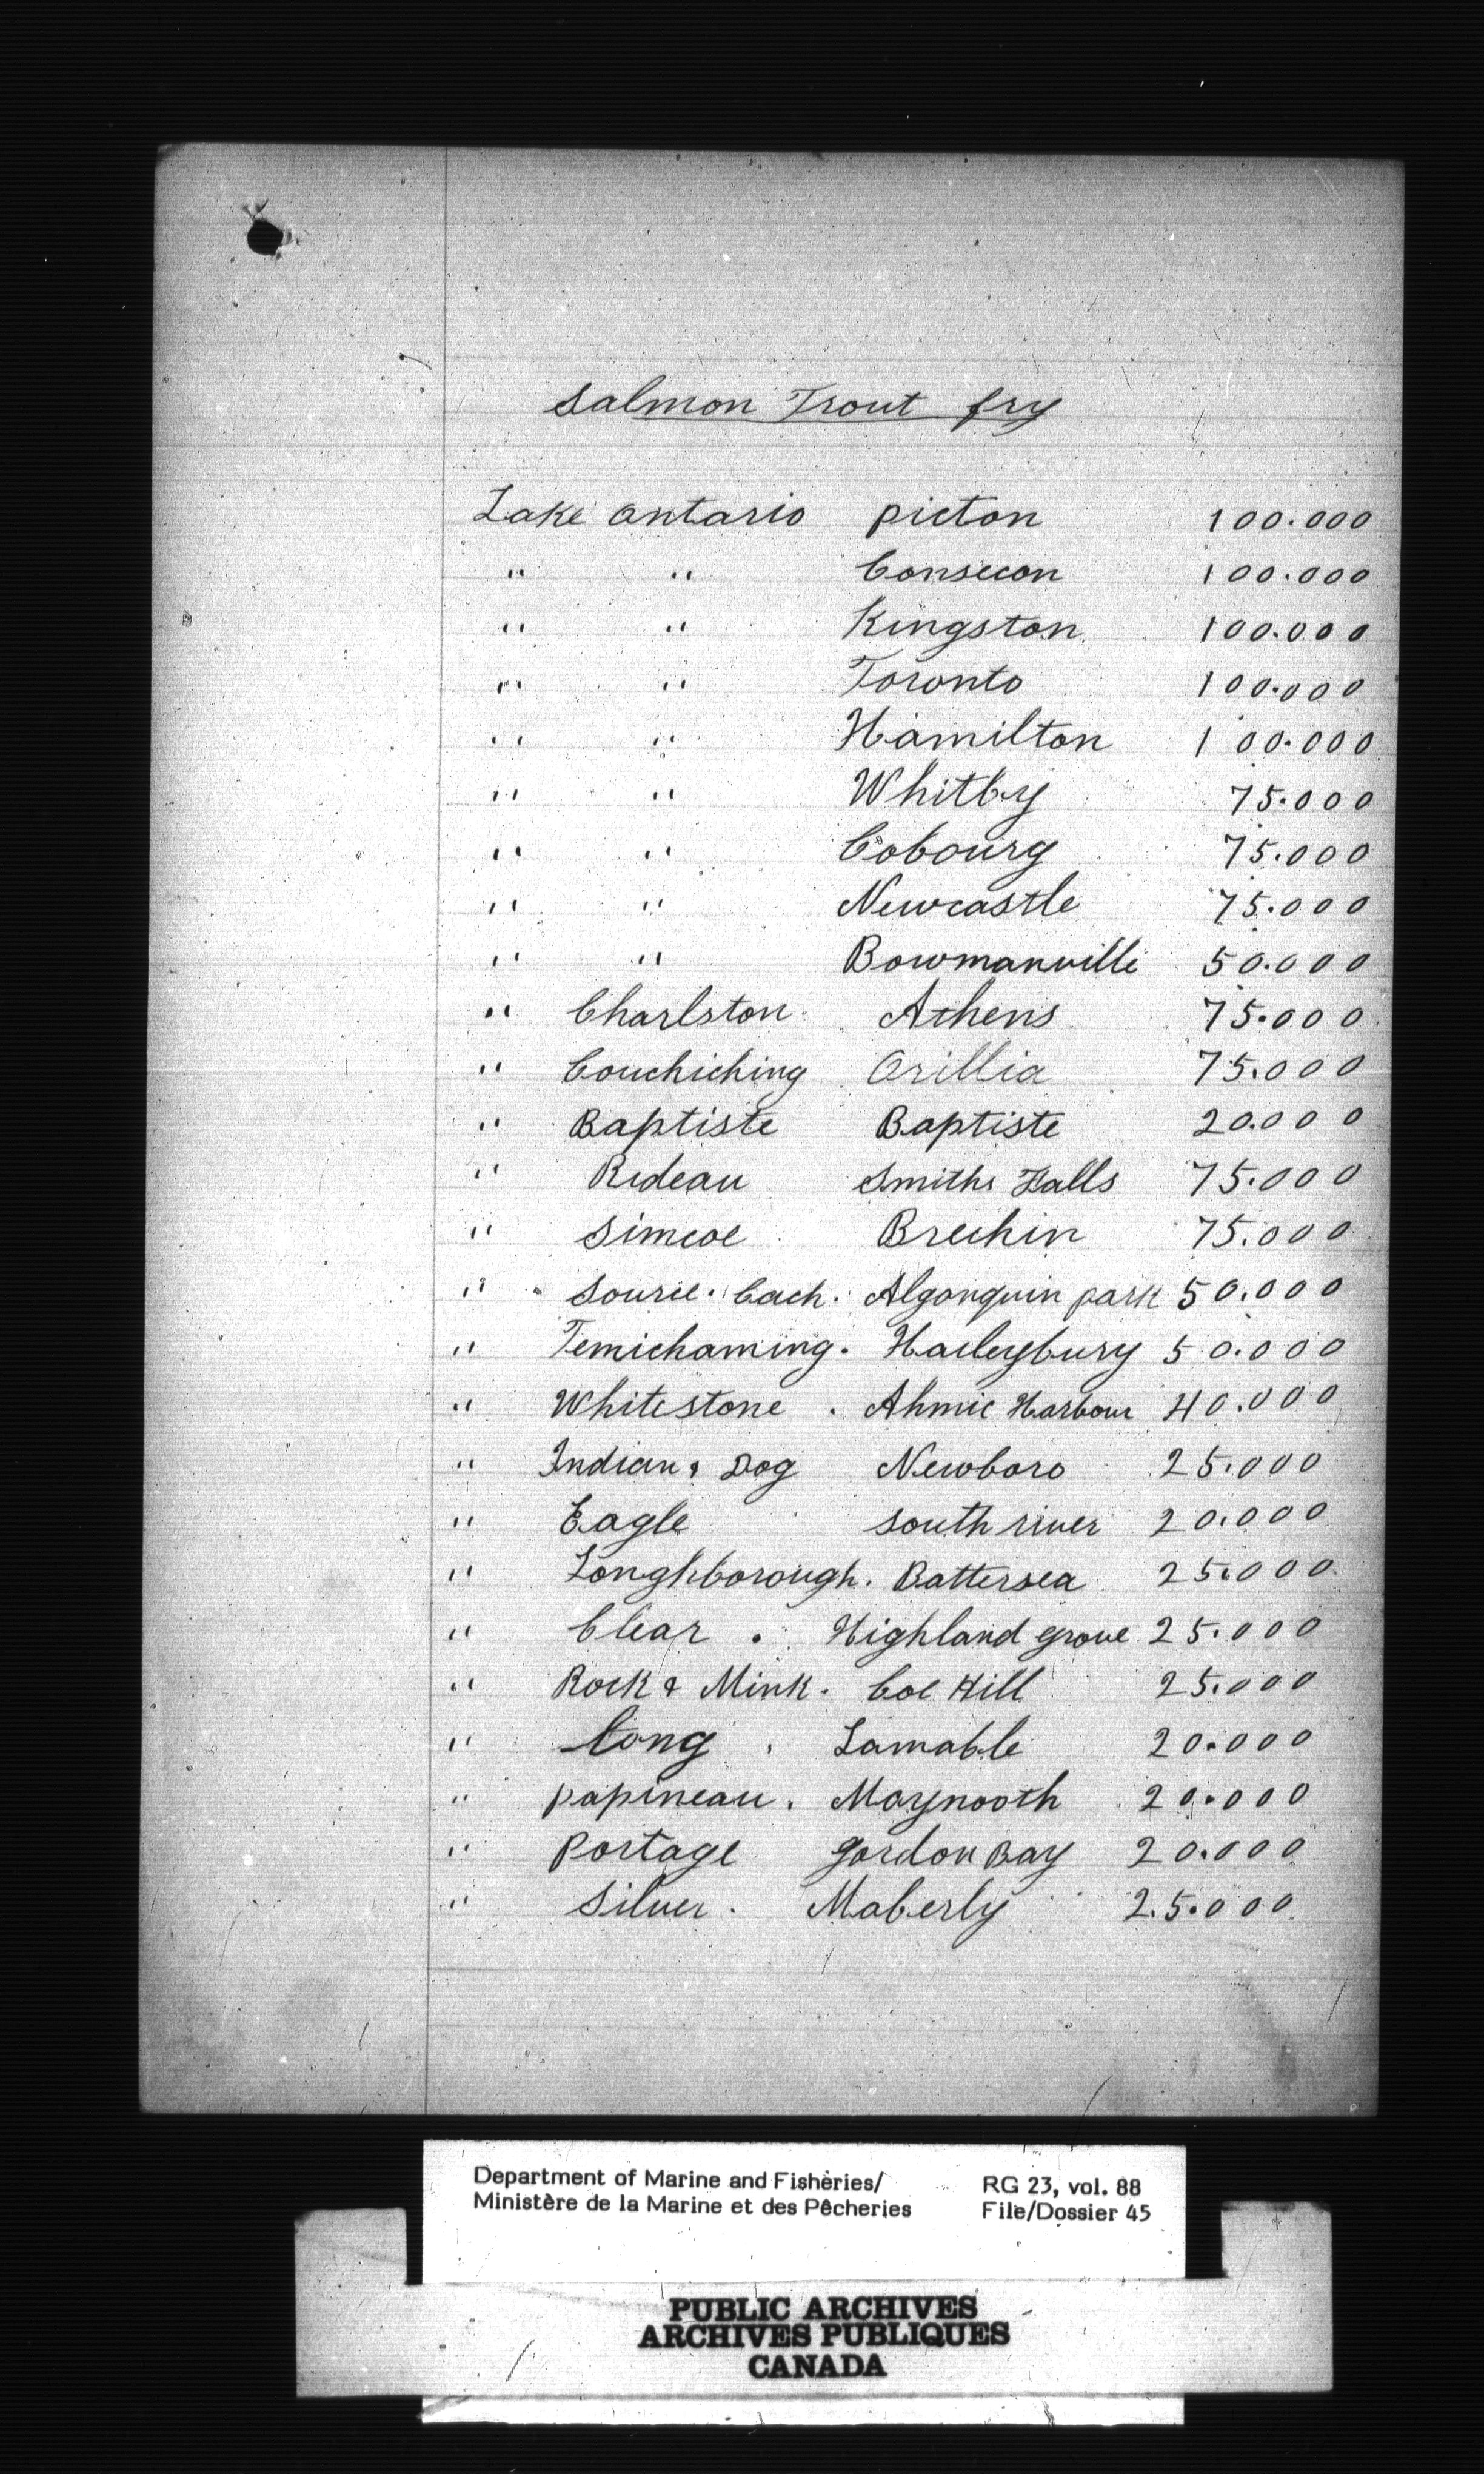 Salmon Trout fry
Lake Ontario Picton 100.000
" " Consecon 100.000
" " Kingston 100.000
" " Toronto 100.000
" " Hamilton 100.000
" " Whitby 75.000
" " Cobourg 75.000
" " Newcastle 75.000
" " Bowmanville 50.000
" Charlston Athens 75.000
" Couchiching Orillia 75.000
" Baptiste Baptiste 20.000
" Rideau Smiths Falls 75.000
" Simcoe Brechin 75.000
" Source. Cach. Algonquin park 50.000
" Temichaming. Haileybury 50.000
" Whitestone. Ahmic Harbour 40.000
" Indian & Dog Newboro 25.000
" Eagle South river 20.000
" Longhborough. Battersea 25.000
" Clear. Highland grove 25.000
" Rock & Mink. Coe Hill 25.000
" Long. Lamable 20.000
" Papineau. Maynooth 20.000
" Portage Gordon Bay 20.000
" Silver. Maberly 25.000
Department of Marine and Fisheries/ RG 23, vol. 88
Ministère de la Marine et des Pêcheries File/Dossier 45
PUBLIC ARCHIVES
ARCHIVES PUBLIQUES
CANADA